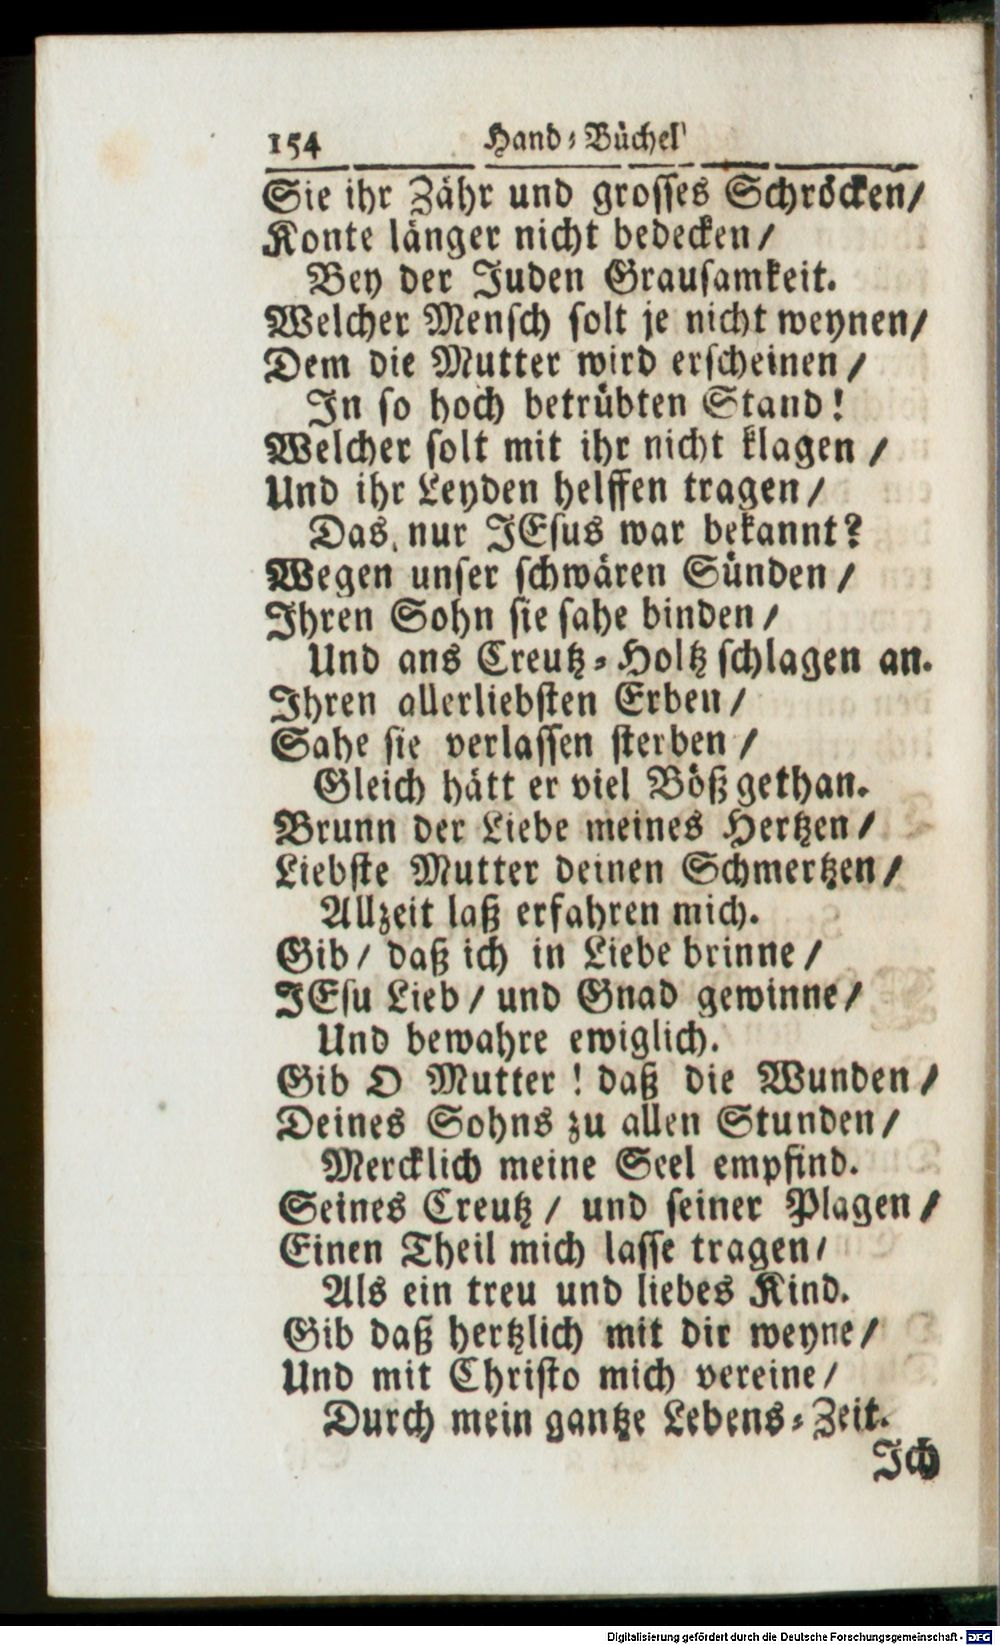 154 Hand-Büchel
Sie ihr Zähr und grosses Schröcken/
Konte länger nicht bedecken/
Bey der Juden Grausamkeit.
Welcher Mensch solt je nicht weynen/
Dem die Mutter wird erscheinen/
In so hoch betrübten Stand!
Welcher solt mit ihr nicht klagen/
Und ihr Leyden helffen tragen/
Das nur JEsus war bekannt?
Wegen unser schwären Sünden/
Ihren Sohn sie sahe binden/
Und ans Creutz-Holtz schlagen an.
Ihren allerliebsten Erben/
Sahe sie verlassen sterben/
Gleich hätt er viel Böß gethan.
Brunn der Liebe meines Hertzen/
Liebste Mutter deinen Schmertzen/
Allzeit laß erfahren mich.
Gib/ daß ich in Liebe brinne/
JEsu Lieb/ und Gnad gewinne/
Und bewahre ewiglich.
Gib O Mutter! daß die Wunden/
Deines Sohns zu allen Stunden/
Mercklich meine Seel empfind.
Seines Creutz/ und seiner Plagen/
Einen Theil mich lasse tragen/
Als ein treu und liebes Kind.
Gib daß hertzlich mit dir weyne/
Und mit Christo mich vereine/
Durch mein gantze Lebens-Zeit.
Ich
Digitalisierung gefördert durch die Deutsche Forschungsgemeinschaft - DFG